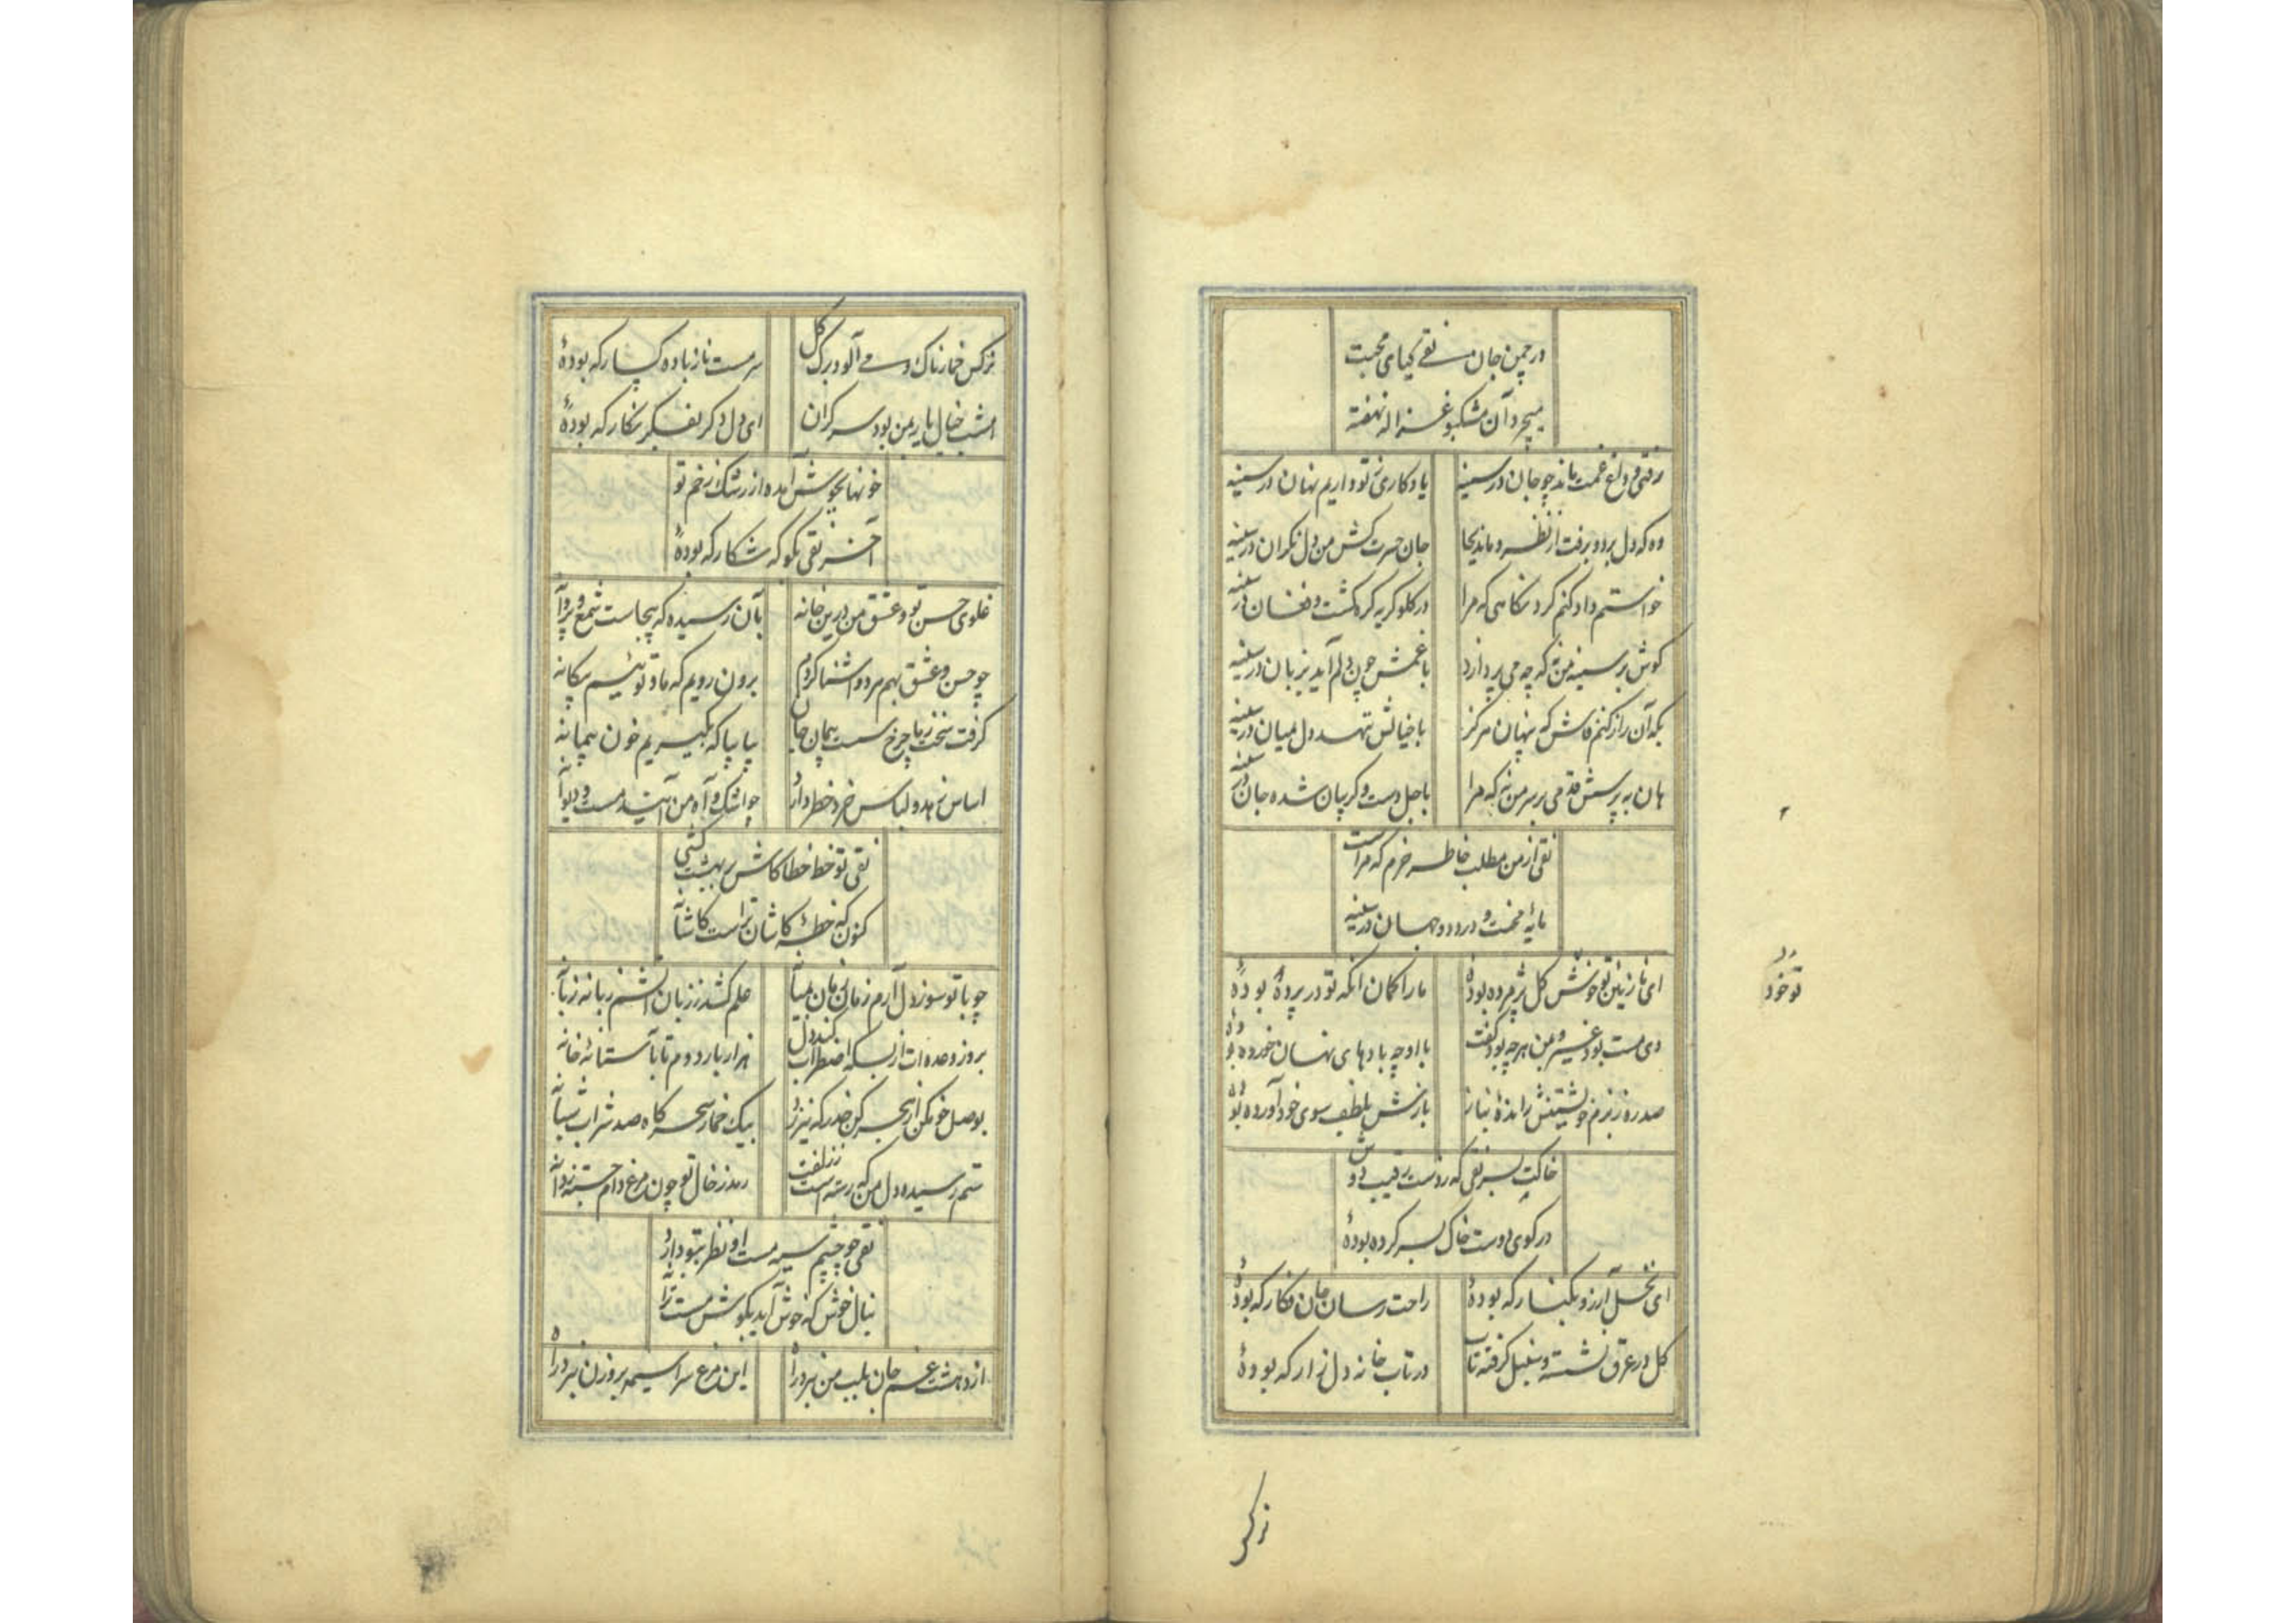 در چمن جان نقی گیای محبت
میچرد آن مشکبو غزاله نهفته
رفتی و داغ غمت ماند چو جان در سینه یادکاری ز تو داریم نهان در سینه
وه که دل برد و برفت از نظر و ماند بجا جان حسرت کش من دل نکران در سینه
خواستم داد کنم کرد نکاهی که مرا در کلو کریه کره کشت و فغان در سینه
کوش بر سینه من نه که چه می پردازد با غمش چون دلم آید بزبان در سینه
هان به پرسش قدمی بر سر من نه که مرا با اجل دست و کریبان شده جان در سینه
نقی از من مطلب خاطر خرم که مراست
مایه محنت و درد دو جهان در سینه
ای نازنین تو خوش کل پژمرده بودهٔ ما را کمان انکه تو در پردهٔ بودهٔ
دی مست بود غیر و بمن هرچه بود گفت با او چه بادهای نهان خورده بودهٔ
صد ره ز بزم خویشتنش راندهٔ بناز بازش بلطف سوی خود آورده بودهٔ
خاکت بسر نقی که ز دست رقیب دوش
در کوی دوست خاک بسر کرده بودهٔ
ای نخل آرزو بکنار که بودهٔ راحت رسان جان فکار که بودهٔ
کل در عرق نشسته و سنبل کرفته تاب در تاب خانه دل زار که بودهٔ
تو خود
نرکس
نرکس خمارناک و می آلود برک کل سرمست ناز باده کسار که بودهٔ
امشب خیال یار بمن بود سرکران ای دل دکر بفکر نکار که بودهٔ
خونها بجوش آمده از رشک زخم تو
آخر نقی بکو که شکار که بودهٔ
غلوی حسن تو و عشق من درین خانه بآن رسیده که بیجاست شمع و پروانه
چو حسن و عشق بهم هر دو آشنا کردیم برون رویم که ما و توئیم بیکانه
کرفت سخت ز ما چرخ سست پیمان جان بیا بیا که بکیریم خون پیمانه
اساس زهد و لباس خرد خطر دارد چو اشک و آه من آیند مست و دیوانه
نقی تو خط خطا کاش بر بهشت کشی
کنون که خطهٔ کاشان تراست کاشانه
چو با تو سوز دل آرم زمان زمان بمیانه علم کشد ز زبان آتشم زبانه زبانه
بروز وعده ات از بسکه اضطراب کند دل هزار بار دوم تا بآستانهٔ خانه
بوصل خو مکن از هجر کن حذر که نیرزد بیک خمار سحرکاه صد شراب شبانه
ستم رسیده دل من که رسته است ز زلفت رمد ز خال تو چون مرغ دام جسته ز دانه
نقی چو چشم سیه مست او نظر بتو دارد
بنال خوش که خوش آید بکوش مست ترانه
از دهشت غم جان بلب من نبرد راه این مرغ سراسیمه بروزن نبرد راه